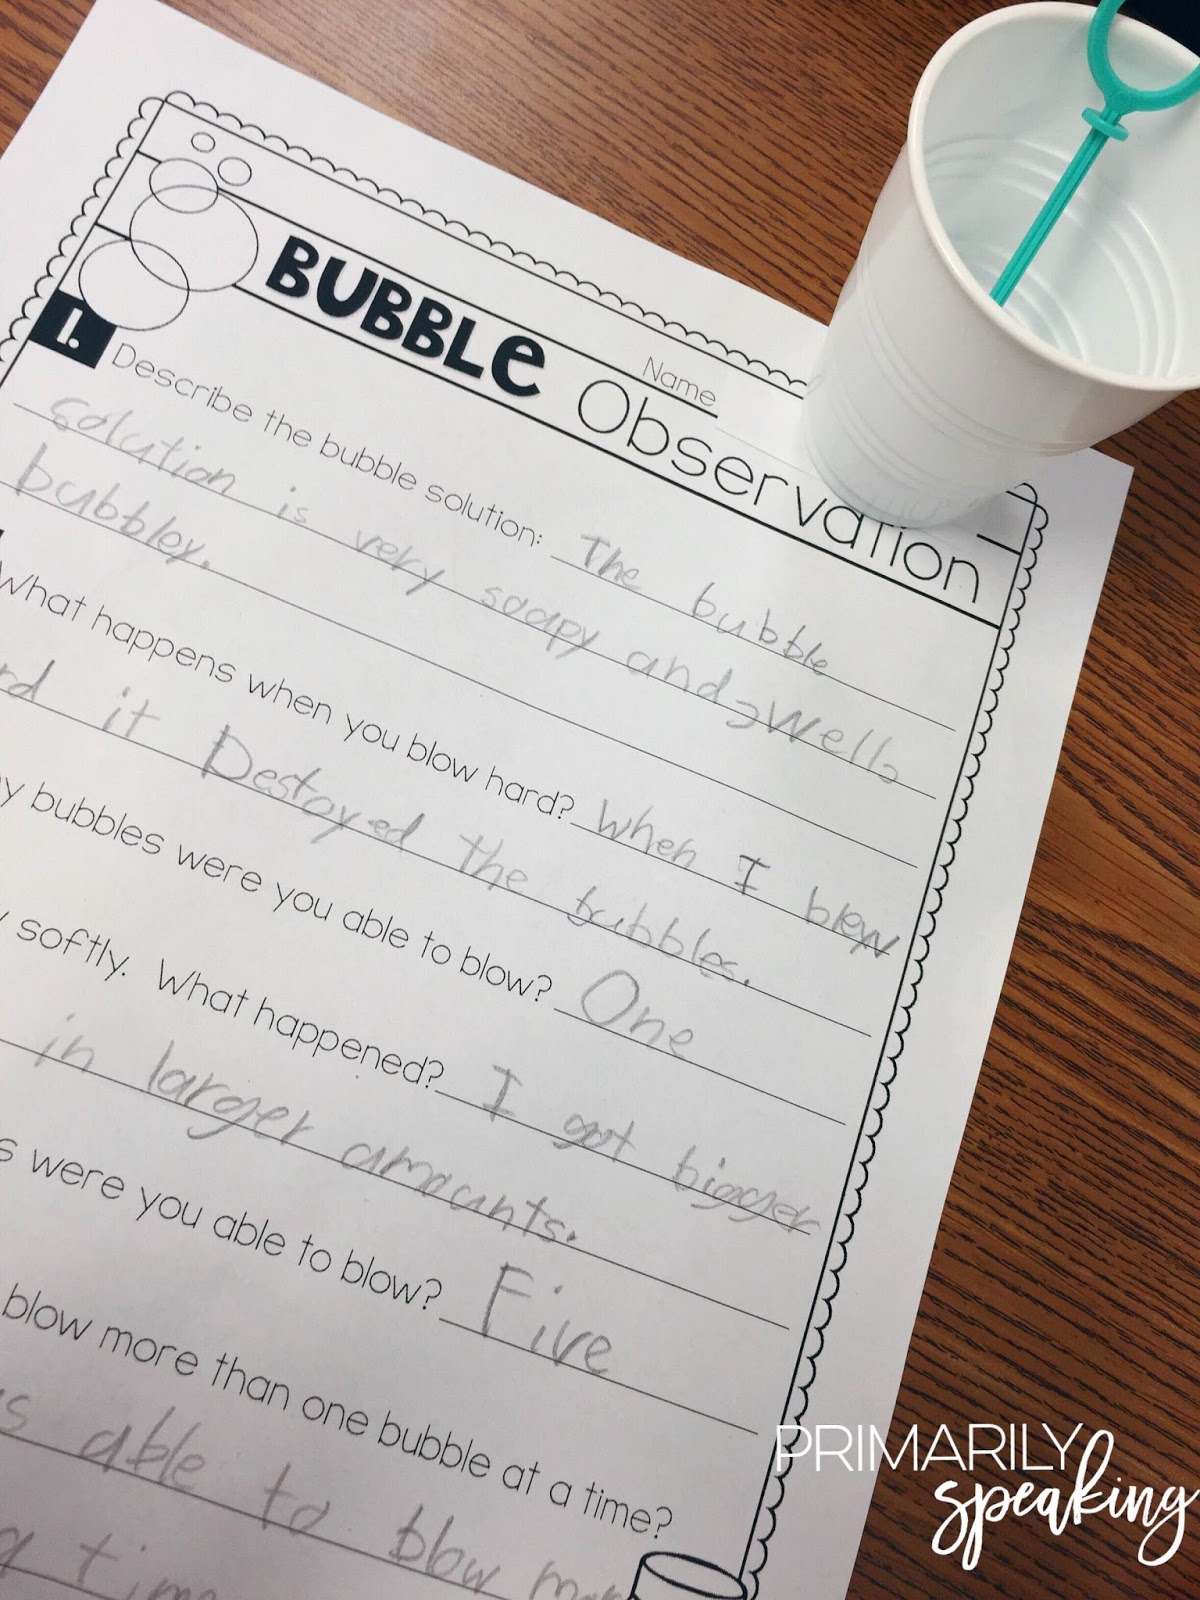 Name
BUBBLE Observation
1. Describe the bubble solution: The bubble
solution is very soapy and
bubbley.
What happens when you blow hard? When I blew
it Destoyed the bubbles.
bubbles were you able to blow? One
softly. What happened? I got bigger
in larger amounts.
were you able to blow? Five
blow more than one bubble at a time?
able to blow
time
PRIMARILY
speaking